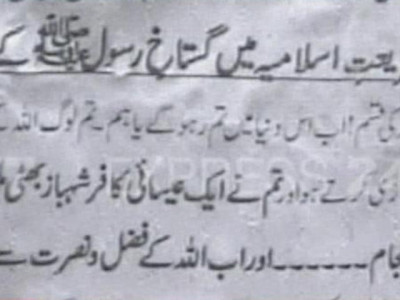 یعتِ اسلامیہ میں گستاخِ رسول ﷺ کے
کی قسم! اب اس دنیا میں تم رہو گے یا ہم۔ تم لوگ اللہ کے
کرتے ہو اور تم نے ایک عیسائی کافر شہباز بھٹی
جام ۔۔۔۔۔۔۔ اور اب اللہ کے فضل و نصرت سے